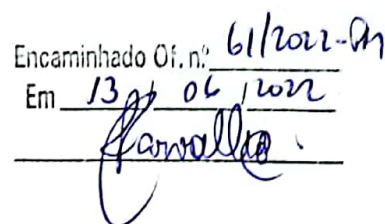 Encaminhado Of. n.º 61/2022-PM
Em 13 / 06 / 2022
Carvalho